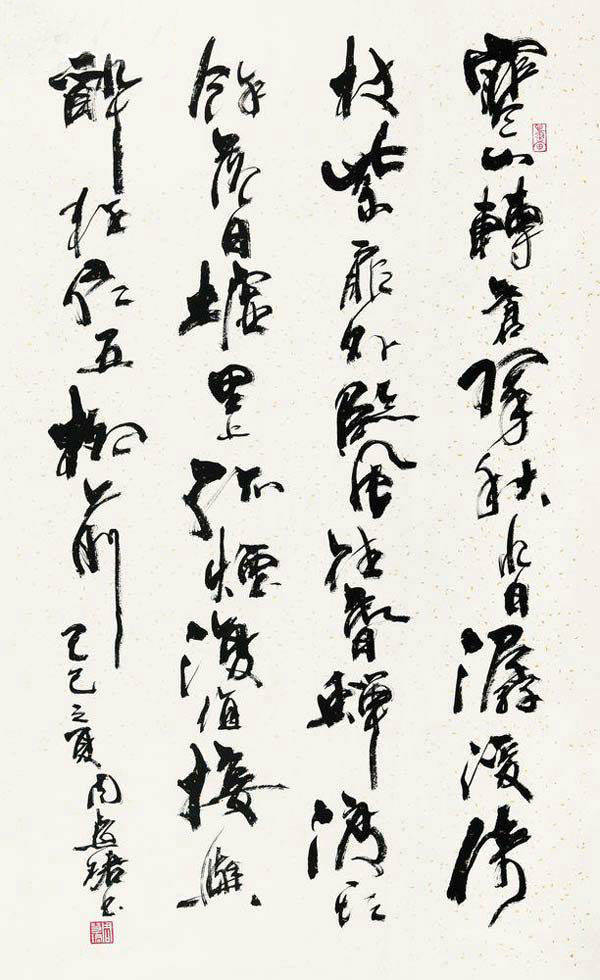 寒山轉蒼翠秋水日潺湲倚
杖柴扉外臨風聽暮蟬渡頭
餘落日墟里上孤煙復值接輿
醉狂歌五柳前己巳之夏周慧珺书